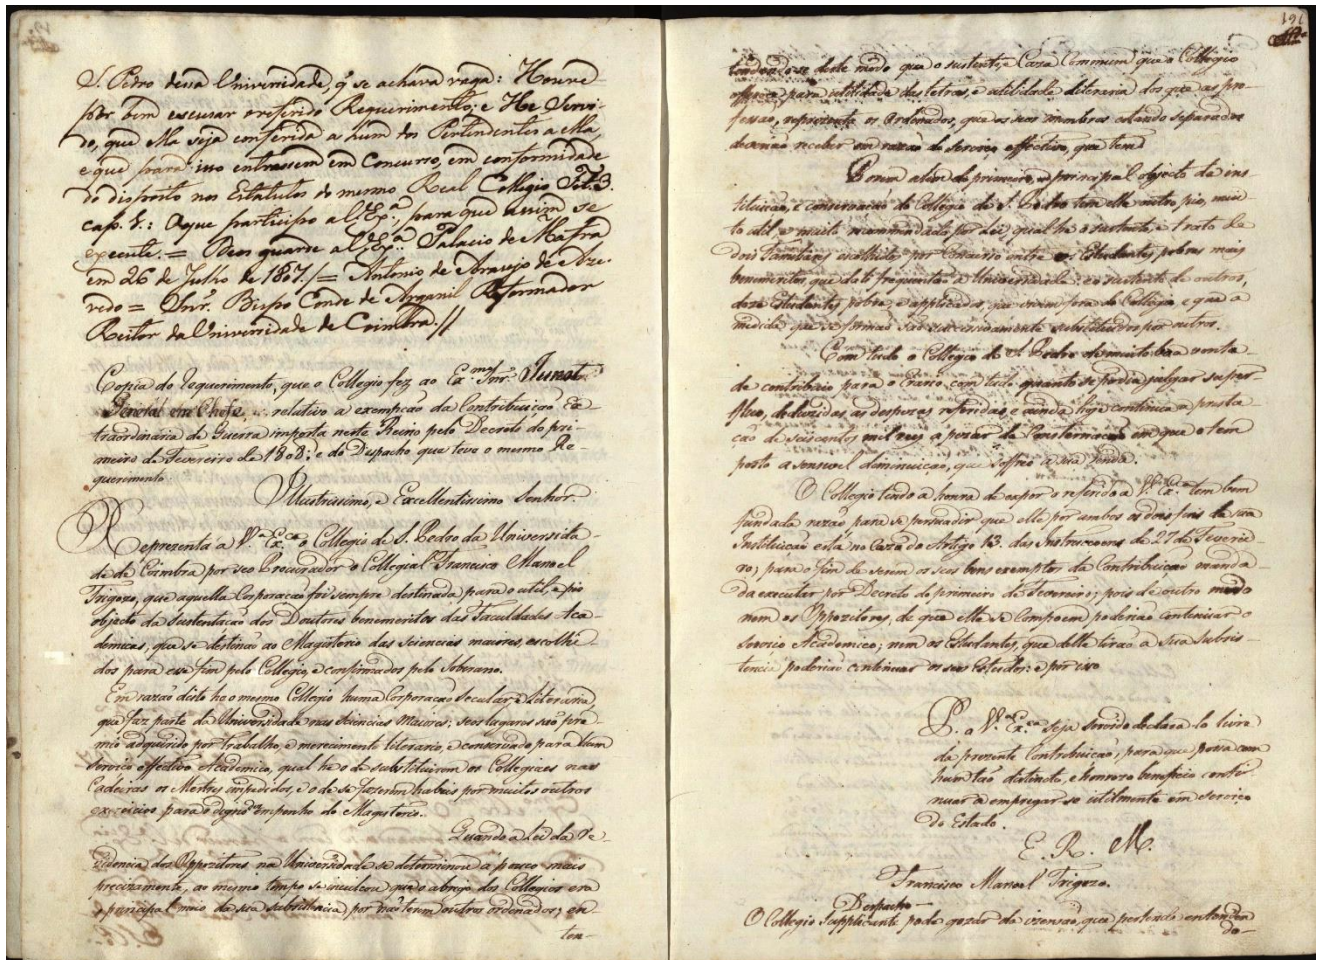 S. Pedro dessa Universidade, q̃ se achava vaga: Houve
por bem escusar o referido Requerimento, e He Servi-
do, que Ella seja conferida a hum dos Pertendentes a Ella,
e que para isso entrassem em Concurso, em conformidade
do disposto nos Estatutos do mesmo Real Collegio Tit. 3.
cap. 5.: O que participo a V. Exª, para que assim se
execute. = Deos guarde a V. Exª. Palacio de Mafra
em 26 de Julho de 1807. /= Antonio de Araujo de Aze-
vedo = Snr. Bispo Conde de Arganil Reformador
Reitor da Universidade de Coimbra. //
Copia do Requerimento, que o Collegio fez ao Ex.mo Snr. Junot
General em Chefe, relativo a exempção da Contribuição Ex-
traordinaria de Guerra imposta neste Reino pelo Decreto do pri-
meiro de Fevereiro de 1808: e do Despacho que teve o mesmo Re-
querimento
Illustrissimo, e Excellentissimo Senhor
Reprezenta a V.ª Ex.cia o Collegio de S. Pedro da Universida-
de de Coimbra por seo Procurador o Collegial Francisco Manoel
Trigozo, que aquella Corporação foi sempre destinada para o util, e pio
objecto da Sustentação dos Doutores benemeritos das Faculdades Aca-
demicas, que se destinão ao Magisterio das Sciencias maiores, escolhi-
dos para esse fim pelo Collegio, e confirmados pelo Soberano.
Em razão disto he o mesmo Collegio huma Corporação Secular, e Literaria,
que faz parte da Universidade nas Sciencias Maiores; seos lugares são pre-
mio adquirido por trabalho, e merecimento literario, e conservado para hum
serviço effectivo Academico, qual he o de substituirem os Collegiaes nas
Cadeiras os Mestres impedidos, e o de se fazerem habeis por muitos outros
exercicios para o digno empenho do Magisterio.
Quando a Lei da re-
zidencia dos Oppozitores na Universidade se determinou á pouco mais
precizamente, ao mesmo tempo se inculcou que o abrigo dos Collegios era
o principal meio da sua subsistencia, por não terem outros ordenados; en-
ten-
191
tendendo-se deste modo que o sustento, e Caza Commum que o Collegio
offerece para utilidade das letras, e utilidade literaria dos que as pro-
fessão, reprezenta os Ordenados, que os seos membros estando separados
deverião receber em razão do serviço effectivo, que tem
Porem alem do primeiro, e principal objecto da ins-
tituição, e conservação do Collegio de S. Pedro tem elle outro pio, mui-
to util, e muito recommendado por Lei; qual he o sustento, e trato de
dois Familiares escolhidos por Concurso entre os Estudantes pobres mais
benemeritos, que dali frequentão a Universidade: e o sustento de outros,
doze Estudantes pobres, e applicados, que vivem fora do Collegio, e que a
medida que se formão são successivamente substituidos por outros.
Com tudo o Collegio de S. Pedro de muito boa vonta-
de contribuio para o Erario com tudo quanto se podia julgar super-
fluo, deduzidas as despezas referidas, e ainda hoje continua a presta-
ção de seiscentos mil reis a pezar da Consternação em que o tem
posto a sensivel diminuição, que soffreo a sua renda.
O Collegio tendo a honra de expor o referido a V. Ex.cia tem bem
fundada razão para se persuadir que elle por ambos os dois fins da sua
Instituição está no Cazo do Artigo 13. das Instrucçoens de 27 de Feverei-
ro; para o fim de serem os seos bens exemptos da Contribuição manda-
da executar por Decreto do primeiro de Fevereiro; pois de outro modo
nem os Oppozitores, de que elle se Compoem poderião continuar o
serviço Academico; nem os Estudantes, que delle tirão a sua subsis-
tencia poderião continuar os seos Estudos: e por isso
P. a V.ª Ex.cia seja servido declara-lo livre
da prezente Contribuição, para que possa com
hum tão distincto, e honrozo beneficio conti-
nuar a empregar-se utilmente em serviço
do Estado.
E. R. M.
Francisco Manoel Trigozo.
Despacho
O Collegio Supplicante pode gozar da izensão, que pertende entenden
do-